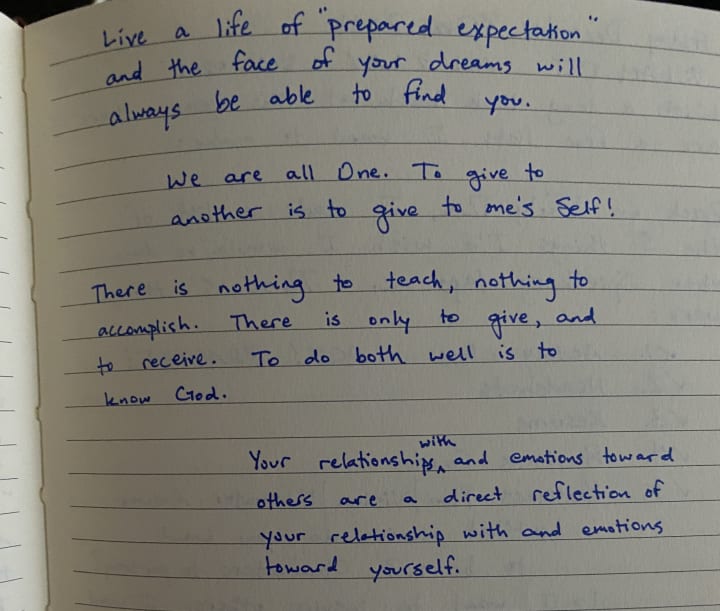 Live a life of "prepared expectation"
and the face of your dreams will
always be able to find you.
We are all One. To give to
another is to give to one's Self!
There is nothing to teach, nothing to
accomplish. There is only to give, and
to receive. To do both well is to
know God.
Your relationships with, and emotions toward
others are a direct reflection of
your relationship with and emotions
toward yourself.